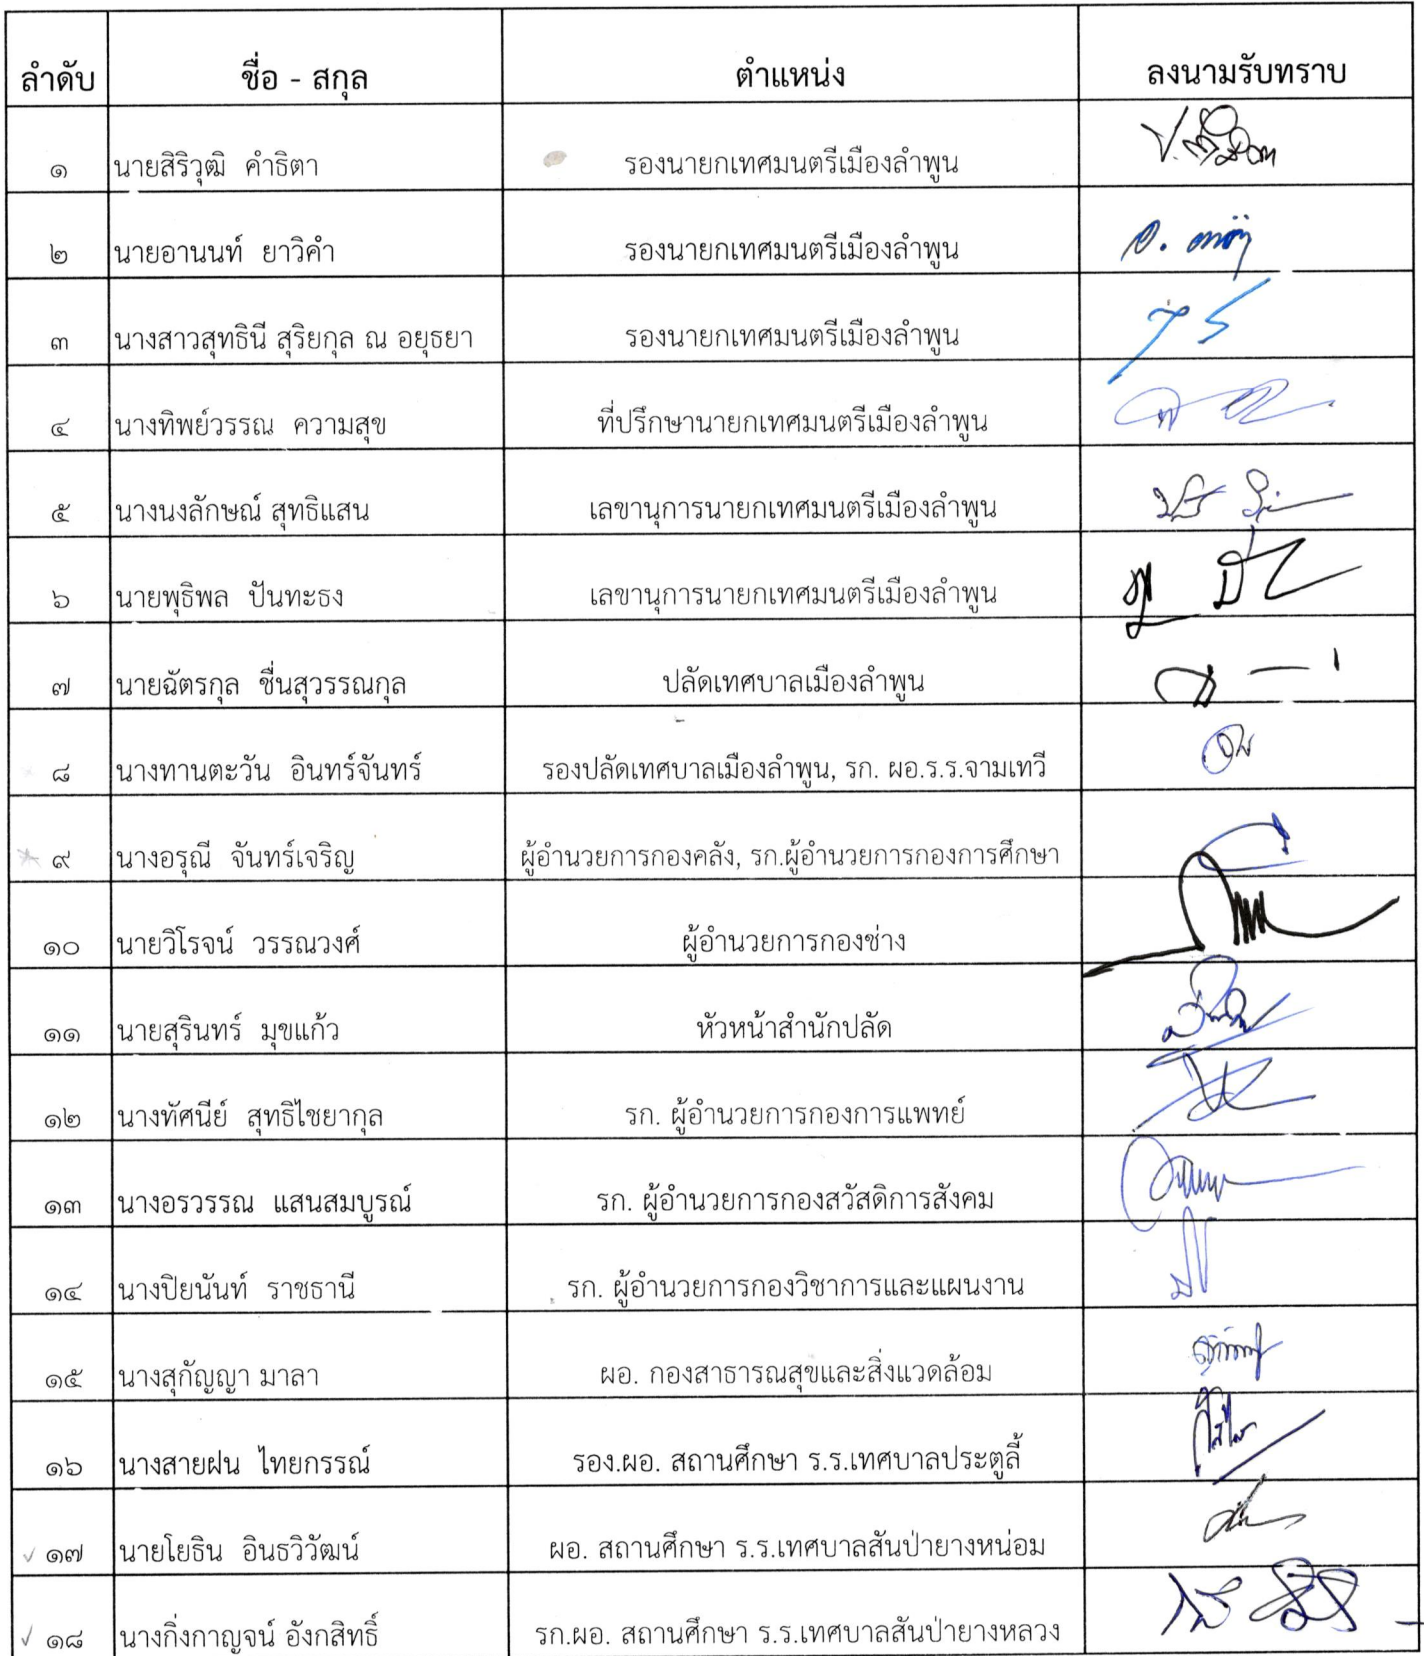 ลำดับ ชื่อ - สกุล ตำแหน่ง ลงนามรับทราบ
๑ นายสิริวุฒิ คำธิตา รองนายกเทศมนตรีเมืองลำพูน
๒ นายอานนท์ ยาวิคำ รองนายกเทศมนตรีเมืองลำพูน
๓ นางสาวสุทธินี สุริยกุล ณ อยุธยา รองนายกเทศมนตรีเมืองลำพูน
๔ นางทิพย์วรรณ ความสุข ที่ปรึกษานายกเทศมนตรีเมืองลำพูน
๕ นางนงลักษณ์ สุทธิแสน เลขานุการนายกเทศมนตรีเมืองลำพูน
๖ นายพุธิพล ปันทะธง เลขานุการนายกเทศมนตรีเมืองลำพูน
๗ นายฉัตรกุล ชื่นสุวรรณกุล ปลัดเทศบาลเมืองลำพูน
๘ นางทานตะวัน อินทร์จันทร์ รองปลัดเทศบาลเมืองลำพูน, รก. ผอ.ร.ร.จามเทวี
๙ นางอรุณี จันทร์เจริญ ผู้อำนวยการกองคลัง, รก.ผู้อำนวยการกองการศึกษา
๑๐ นายวิโรจน์ วรรณวงศ์ ผู้อำนวยการกองช่าง
๑๑ นายสุรินทร์ มุขแก้ว หัวหน้าสำนักปลัด
๑๒ นางทัศนีย์ สุทธิไชยากุล รก. ผู้อำนวยการกองการแพทย์
๑๓ นางอรวรรณ แสนสมบูรณ์ รก. ผู้อำนวยการกองสวัสดิการสังคม
๑๔ นางปิยนันท์ ราชธานี รก. ผู้อำนวยการกองวิชาการและแผนงาน
๑๕ นางสุกัญญา มาลา ผอ. กองสาธารณสุขและสิ่งแวดล้อม
๑๖ นางสายฝน ไทยกรรณ์ รอง.ผอ. สถานศึกษา ร.ร.เทศบาลประตูลี้
๑๗ นายโยธิน อินธวิวัฒน์ ผอ. สถานศึกษา ร.ร.เทศบาลสันป่ายางหน่อม
๑๘ นางกิ่งกาญจน์ อังกสิทธิ์ รก.ผอ. สถานศึกษา ร.ร.เทศบาลสันป่ายางหลวง